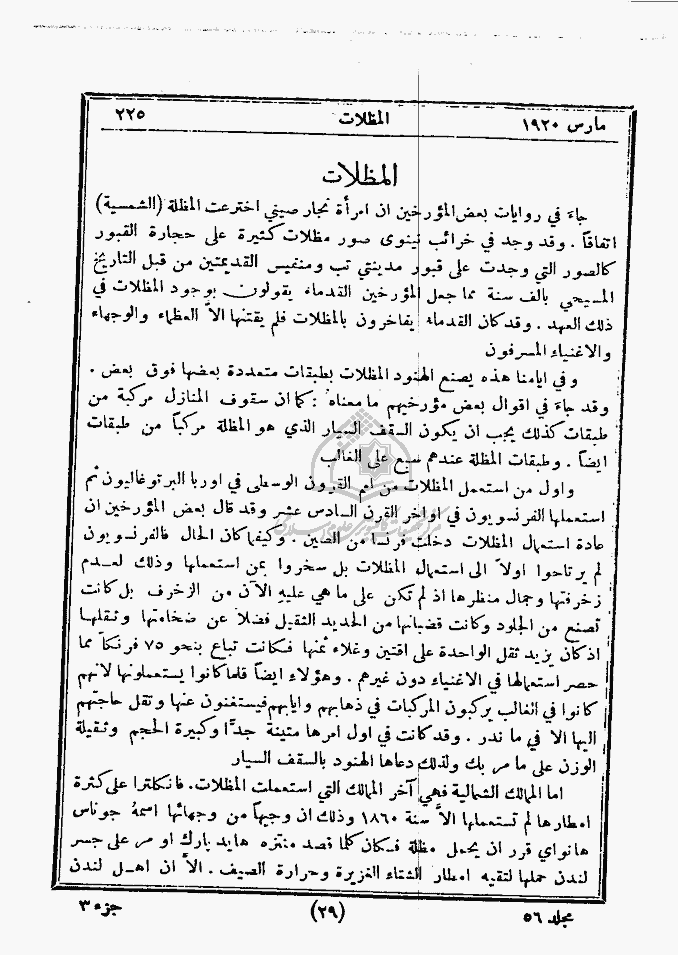 مارس ١٩٢٠ المظلات ٢٢٥
المظلات
جاءَ في روايات بعض المؤرخين ان امرأة نجار صيني اخترعت المظلة (الشمسية)
اتفاقاً . وقد وجد في خرائب نينوى صور مظلات كثيرة على حجارة القبور
كالصور التي وجدت على قبور مدينتي تب ومنفيس القديمتين من قبل التاريخ
المسيحي بالف سنة مما جعل المؤرخين القدماء يقولون بوجود المظلات في
ذلك العهد . وقد كان القدماء يفاخرون بالمظلات فلم يقتنها الاَّ العظماء والوجهاء
والاغنياء المسرفون
وفي ايامنا هذه يصنع الهنود المظلات بطبقات متعددة بعضها فوق بعض .
وقد جاءَ في اقوال بعض مؤرخيهم ما معناه : كما ان سقوف المنازل مركبة من
طبقات كذلك يجب ان يكون السقف السيار الذي هو المظلة مركباً من طبقات
ايضاً . وطبقات المظلة عندهم سبع على الغالب
واول من استعمل المظلات من امم القرون الوسطى في اوربا البرتوغاليون ثم
استعملها الفرنسويون في اواخر القرن السادس عشر وقد قال بعض المؤرخين ان
عادة استعمال المظلات دخلت فرنسا من الصين . وكيفما كان الحال فالفرنسويون
لم يرتاحوا اولاً الى استعمال المظلات بل سخروا بمن استعملها وذلك لعدم
زخرفتها وجمال منظرها اذ لم تكن على ما هي عليهِ الآن من الزخرف بل كانت
تصنع من الجلود وكانت قضبانها من الحديد الثقيل فضلاً عن ضخامتها وثقلها
اذ كان يزيد ثقل الواحدة على اقتين وغلاء ثمنها فكانت تباع بنحو ٧٥ فرنكاً مما
حصر استعمالها في الاغنياء دون غيرهم . وهؤلاء ايضاً قلما كانوا يستعملونها لانهم
كانوا في الغالب يركبون المركبات في ذهابهم وايابهم فيستغنون عنها وتقل حاجتهم
اليها الا في ما ندر . وقد كانت في اول امرها متينة جدًّا وكبيرة الحجم وثقيلة
الوزن على ما مر بك ولذلك دعاها الهنود بالسقف السيار
اما الممالك الشمالية فهي آخر الممالك التي استعملت المظلات. فانكلترا على كثرة
امطارها لم تستعملها الاَّ سنة ١٨٦٠ وذلك ان وجيهاً من وجهائها اسمهُ جوناس
هانواي قرر ان يحمل مظلة فكان كلما قصد منتزه هايد بارك او مر على جسر
لندن حملها لتقيه امطار الشتاء الغزيرة وحرارة الصيف . الاَّ ان اهل لندن
جزء ٣ (٢٩) مجلد ٥٦